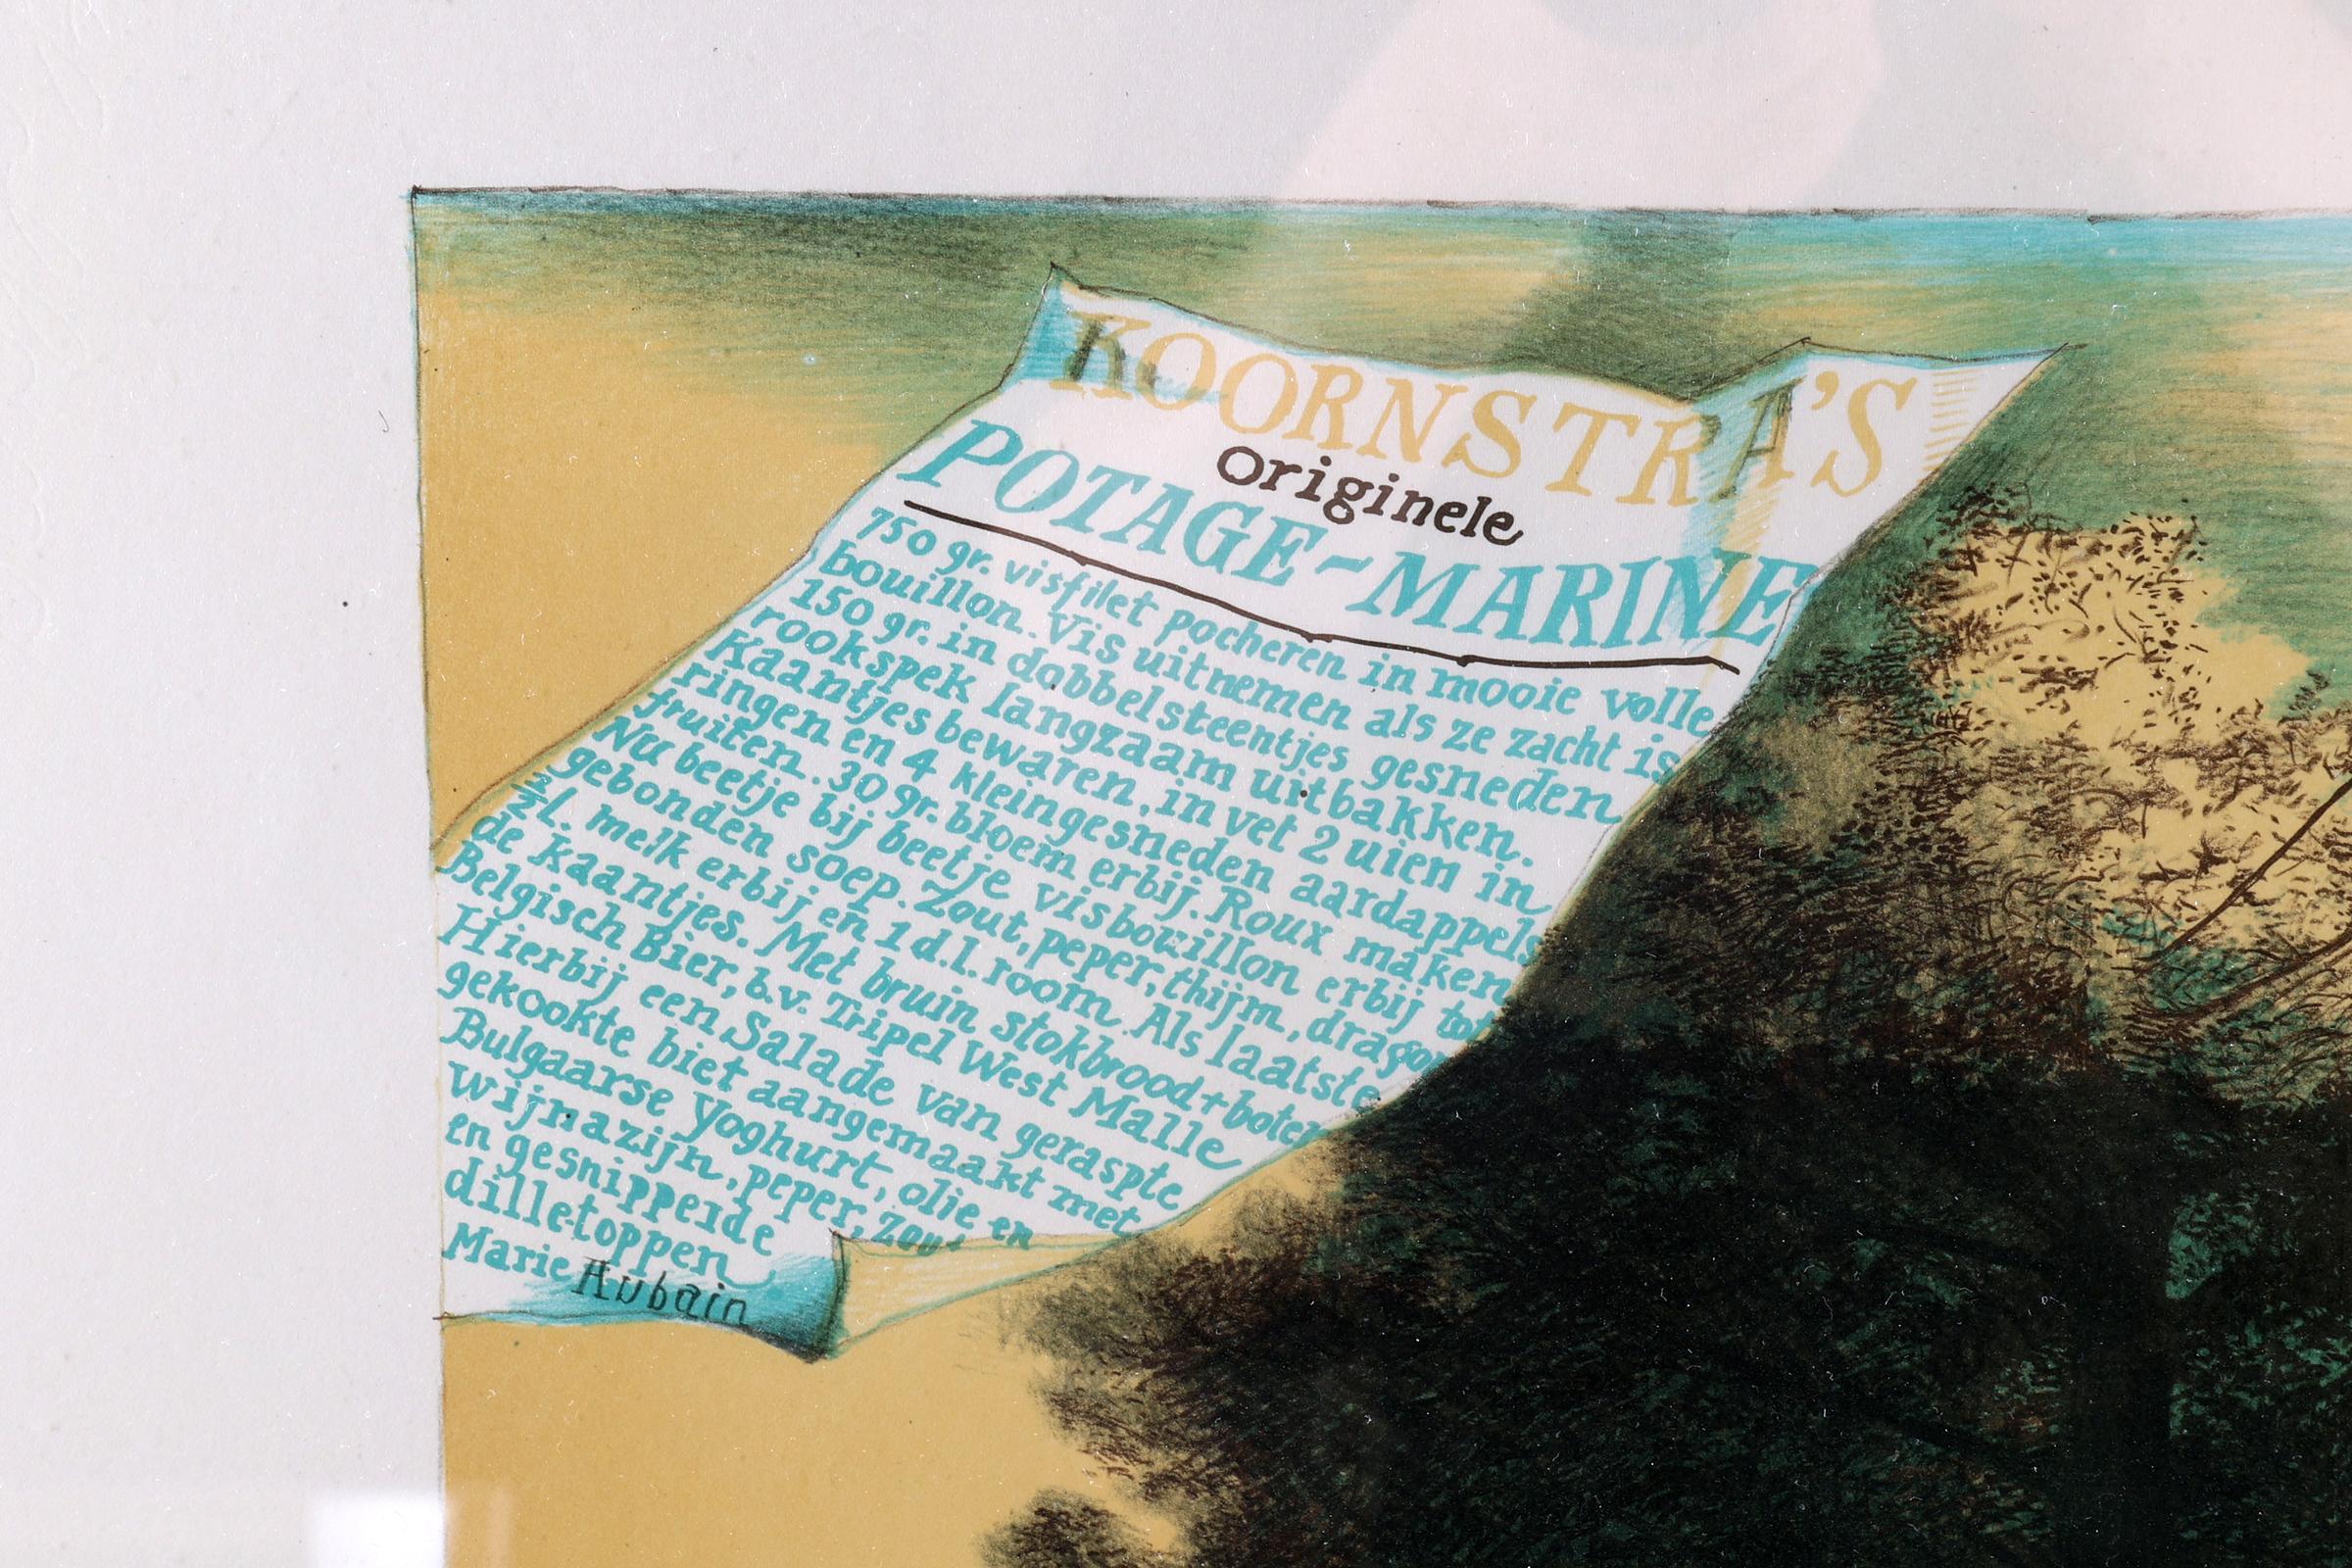 KOORNSTRA'S
originele
POTAGE-MARINE
750 gr. visfilet pocheren in mooie volle
bouillon. Vis uitnemen als ze zacht is
150 gr. in dobbelsteentjes gesneden
rookspek langzaam uitbakken.
Kaantjes bewaren, in vet 2 uien in
ringen en 4 kleingesneden aardappels
fruiten. 30 gr. bloem erbij. Roux maken
Nu beetje bij beetje visbouillon erbij tot
gebonden soep. Zout, peper, thijm, dragon
½ l. melk erbij en 1 d.l. room. Als laatste
de kaantjes. Met bruin stokbrood + boter
Belgisch Bier, b.v. Tripel West Malle
Hierbij een Salade van geraspte
gekookte biet aangemaakt met
Bulgaarse Yoghurt, olie en
wijnazijn, peper, zout
en gesnipperde
dilletoppen
Marie Aubain